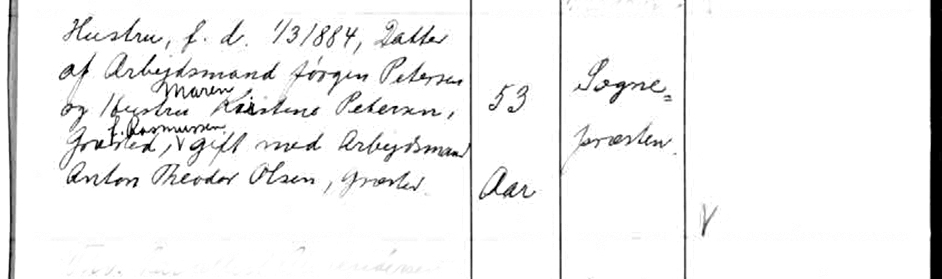 Hustru, f. d. 1/3 1884, Datter
af Arbejdsmand Jørgen Petersen
Maren
og Hustru Kirstine Petersen,
f. Rasmussen
Græsted, V gift med Arbejdsmand
Anton Theodor Olsen, Græsted.
53
Aar
Sogne=
præsten.
V